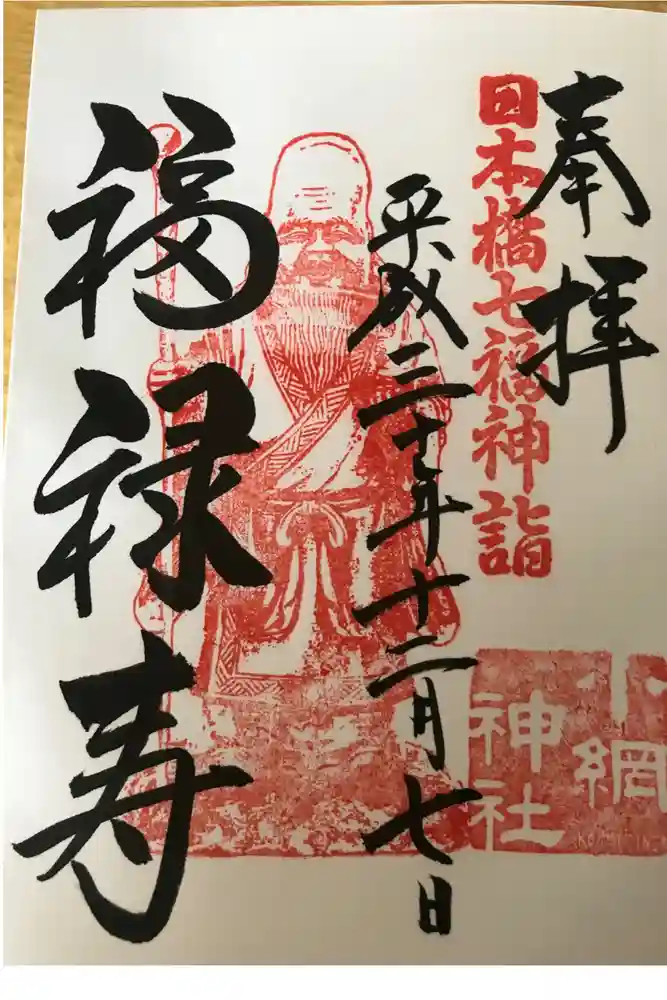 奉拝
日本橋七福神詣
小網
神社
平成二十七年十二月七日
福禄寿